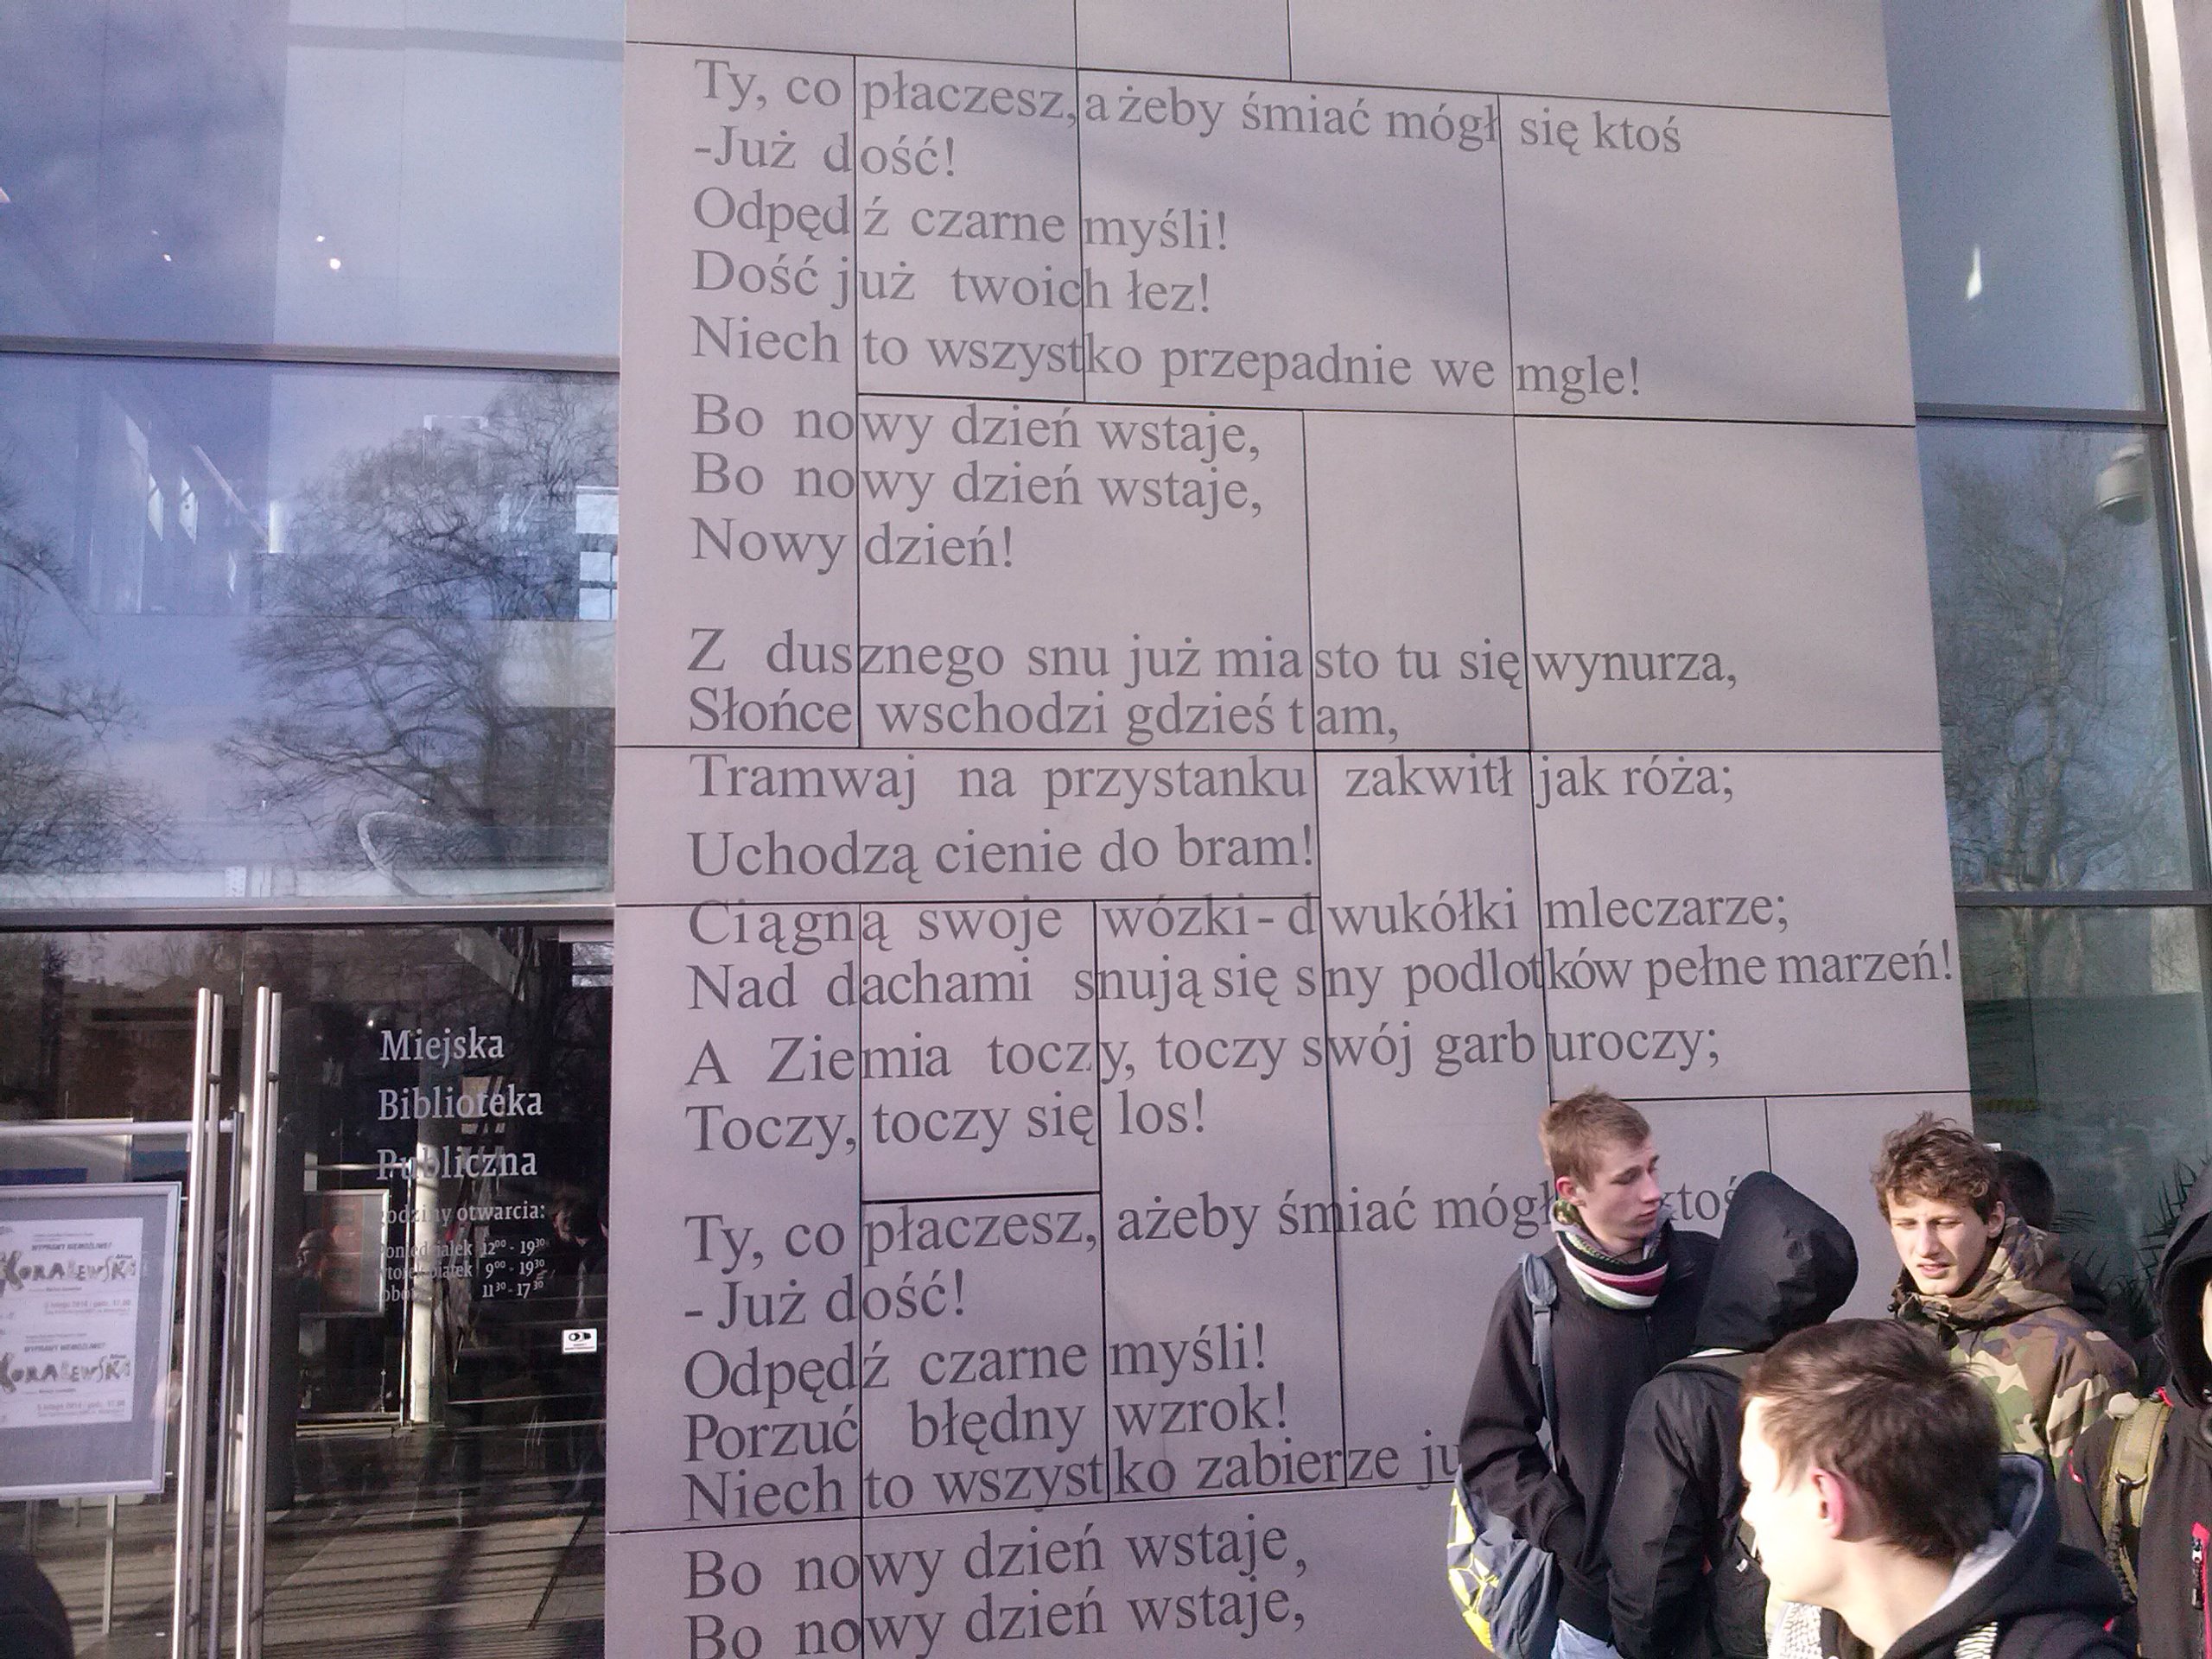 Ty, co płaczesz, ażeby śmiać mógł się ktoś
-Już dość!
Odpędź czarne myśli!
Dość już twoich łez!
Niech to wszystko przepadnie we mgle!
Bo nowy dzień wstaje,
Bo nowy dzień wstaje,
Nowy dzień!
Z dusznego snu już miasto tu się wynurza,
Słońce wschodzi gdzieś tam,
Tramwaj na przystanku zakwitł jak róża;
Uchodzą cienie do bram!
Ciągną swoje wózki-dwukółki mleczarze;
Nad dachami snują się sny podlotków pełne marzeń!
A Ziemia toczy, toczy swój garb uroczy;
Toczy, toczy się los!
Ty, co płaczesz, ażeby śmiać mógł ktoś
- Już dość!
Odpędź czarne myśli!
Porzuć błędny wzrok!
Niech to wszystko zabierze
Bo nowy dzień wstaje,
Bo nowy dzień wstaje,
Miejska
Biblioteka
Publiczna
godziny otwarcia:
poniedziałek 12⁰⁰ - 19³⁰
wtorek-piątek 9⁰⁰ - 19³⁰
11³⁰ - 17³⁰
WYPRAWY NIEMOŻLIWE!
KORALEWSKI
WYPRAWY NIEMOŻLIWE!
KORALEWSKI